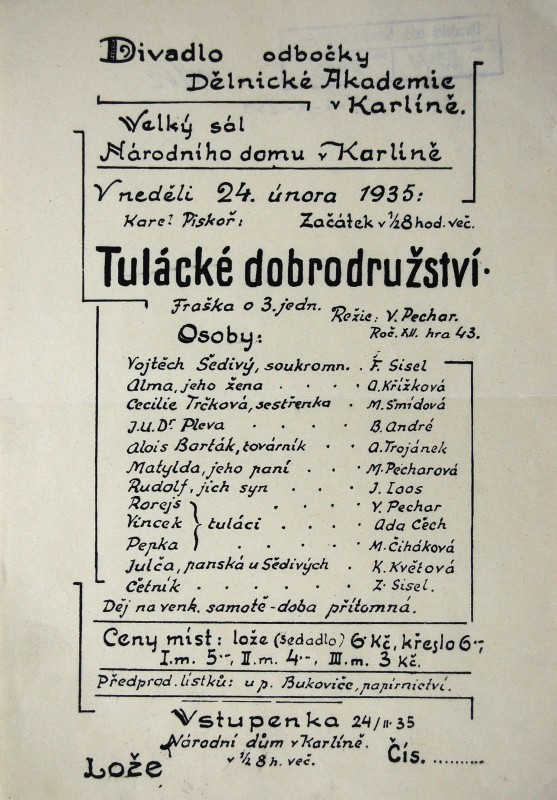 Divadlo odbočky
Dělnické Akademie
v Karlíně.
Velký sál
Národního domu v Karlíně
V neděli 24. února 1935:
Karel Piskoř: Začátek v ½8 hod. več.
Tulácké dobrodružství.
Fraška o 3. jedn. Režie: V. Pechar.
Osoby: Roč. XII. hra 43.
Vojtěch Šedivý, soukromn. . F. Sisel
Alma, jeho žena . . . . A. Křížková
Cecilie Trčková, sestřenka . M. Šmídová
J.U.Dr Pleva . . . . B. André
Alois Barták, továrník . . A. Trojánek
Matylda, jeho paní . . . M. Pecharová
Rudolf, jich syn . . . . J. Laos
Rorejs . . . . V. Pechar
Vincek } tuláci . . . . Ada Čech
Pepka . . . . M. Čiháková
Julča, panská u Šedivých . K. Květová
Četník . . . . . . Z. Sisel.
Děj na venk. samotě-doba přítomná.
Ceny míst: lože (sedadlo) 6 Kč, křeslo 6·-,
I.m. 5·-, II.m. 4·-, III.m. 3 Kč.
Předprod. lístků: u p. Bukoviče, papírnictví.
Vstupenka 24/II·35
Národní dům v Karlíně.
v ½8 h. več. Čís. ..........
Lože